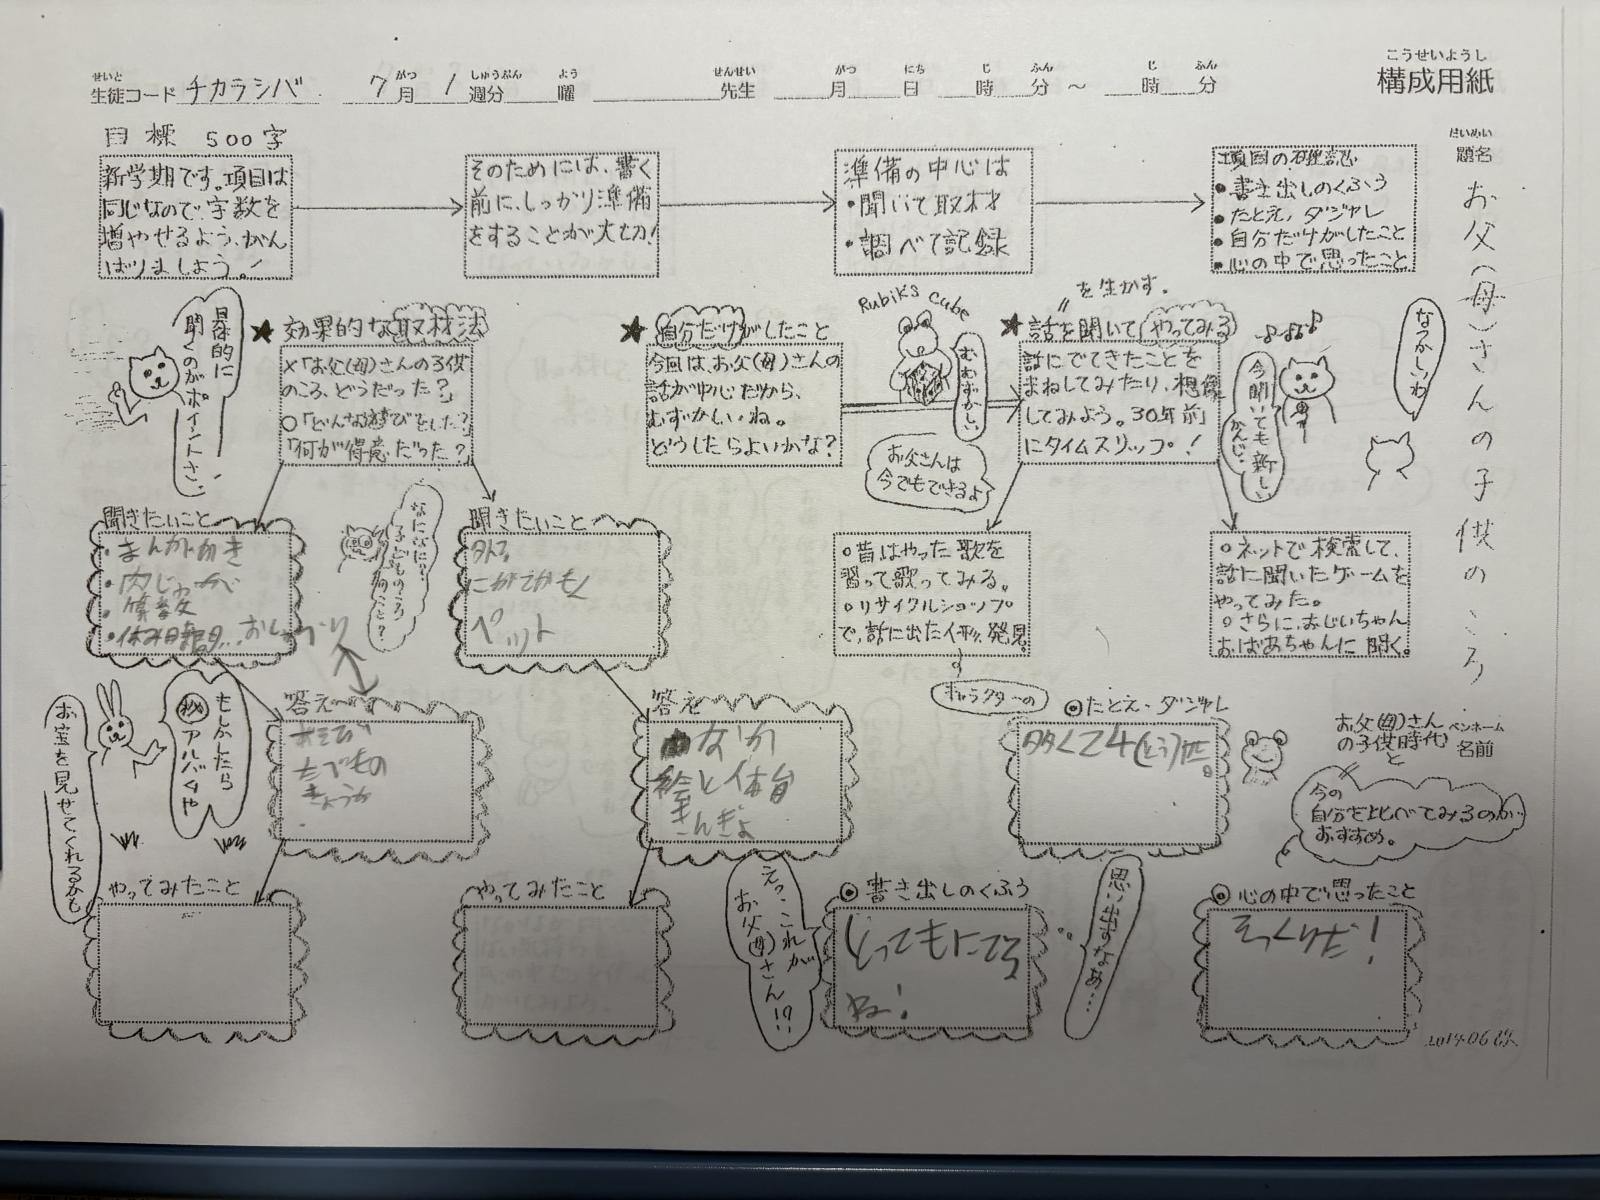 こうせいようし
構成用紙
せいと がつ しゅうぶん よう せんせい がつ にち じ ふん じ ふん
生徒コード チカラシバ 7月 1週分 曜 先生 月 日 時 分 〜 時 分
だいめい
題名
お父(母)さんの子供のころ
目標 500字
新学期です。項目は
同じなので、字数を
増やせるよう、がん
ばりましょう。!
そのためには、書く
前に、しっかり準備
をすることが大切!
準備の中心は
・聞いて取材
・調べて記録
項目の確認
・書き出しのくふう
・たとえ、ダジャレ
・自分だけがしたこと
・心の中で思ったこと
具体的に
聞くのがポイントさ。
★ 効果的な取材法
×「お父(母)さんの子供
のころ、どうだった?」
○「どんな遊びをした?」
「何が得意だった?」
★ 自分だけがしたこと
今回は、お父(母)さんの
話が中心だから、
むずかしいね。
どうしたらよいかな?
Rubik's Cube
むむずかしい
お父さんは
今でもできるよ
を生かす。
★ 話を聞いてやってみる
話にでてきたことを
まねしてみたり、想像
してみよう。30年前
にタイムスリップ!
今聞いても新しい
かんじ。
なつかしいわ
聞きたいこと
・まんがかき
・肉じゃが
・算数
・休み時間…
なになに?
子どものころ
何のこと?
聞きたいこと
にがてかもく
ペット
○昔はやった歌を
習って歌ってみる。
○リサイクルショップ
で、話に出た人形、発見。
キャラクターの
○ネットで検索して、
話に聞いたゲームを
やってみた。
○さらに、おじいちゃん
おばあちゃんに聞く。
もしかしたら
㊙アルバムや
お宝を見せてくれるかも
答え
あそび
たべもの
きょうか
答え
なか
絵と体育
きんぎょ
◎たとえ・ダジャレ
お父(母)さん
の子供時代
と
今の
自分を比べてみるのが
おすすめ。
ペンネーム
名前
やってみたこと
やってみたこと
えっ、これが
お父(母)さん!?
◎書き出しのくふう
とってもにてる
ね!
思い出すなあ…
◎心の中で思ったこと
そっくりだ!